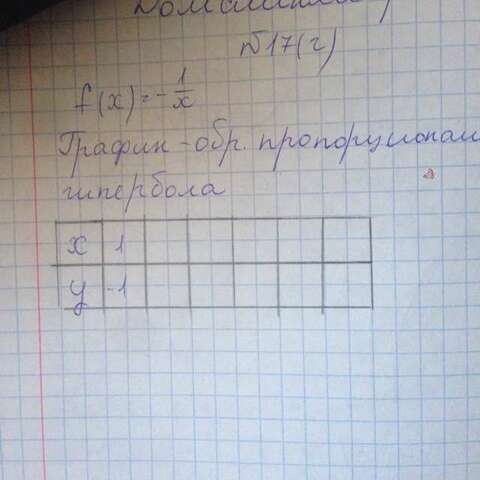 №17(г)
f(x) = -1/x
График - обр. пропорционал
гипербола
x 1
y -1